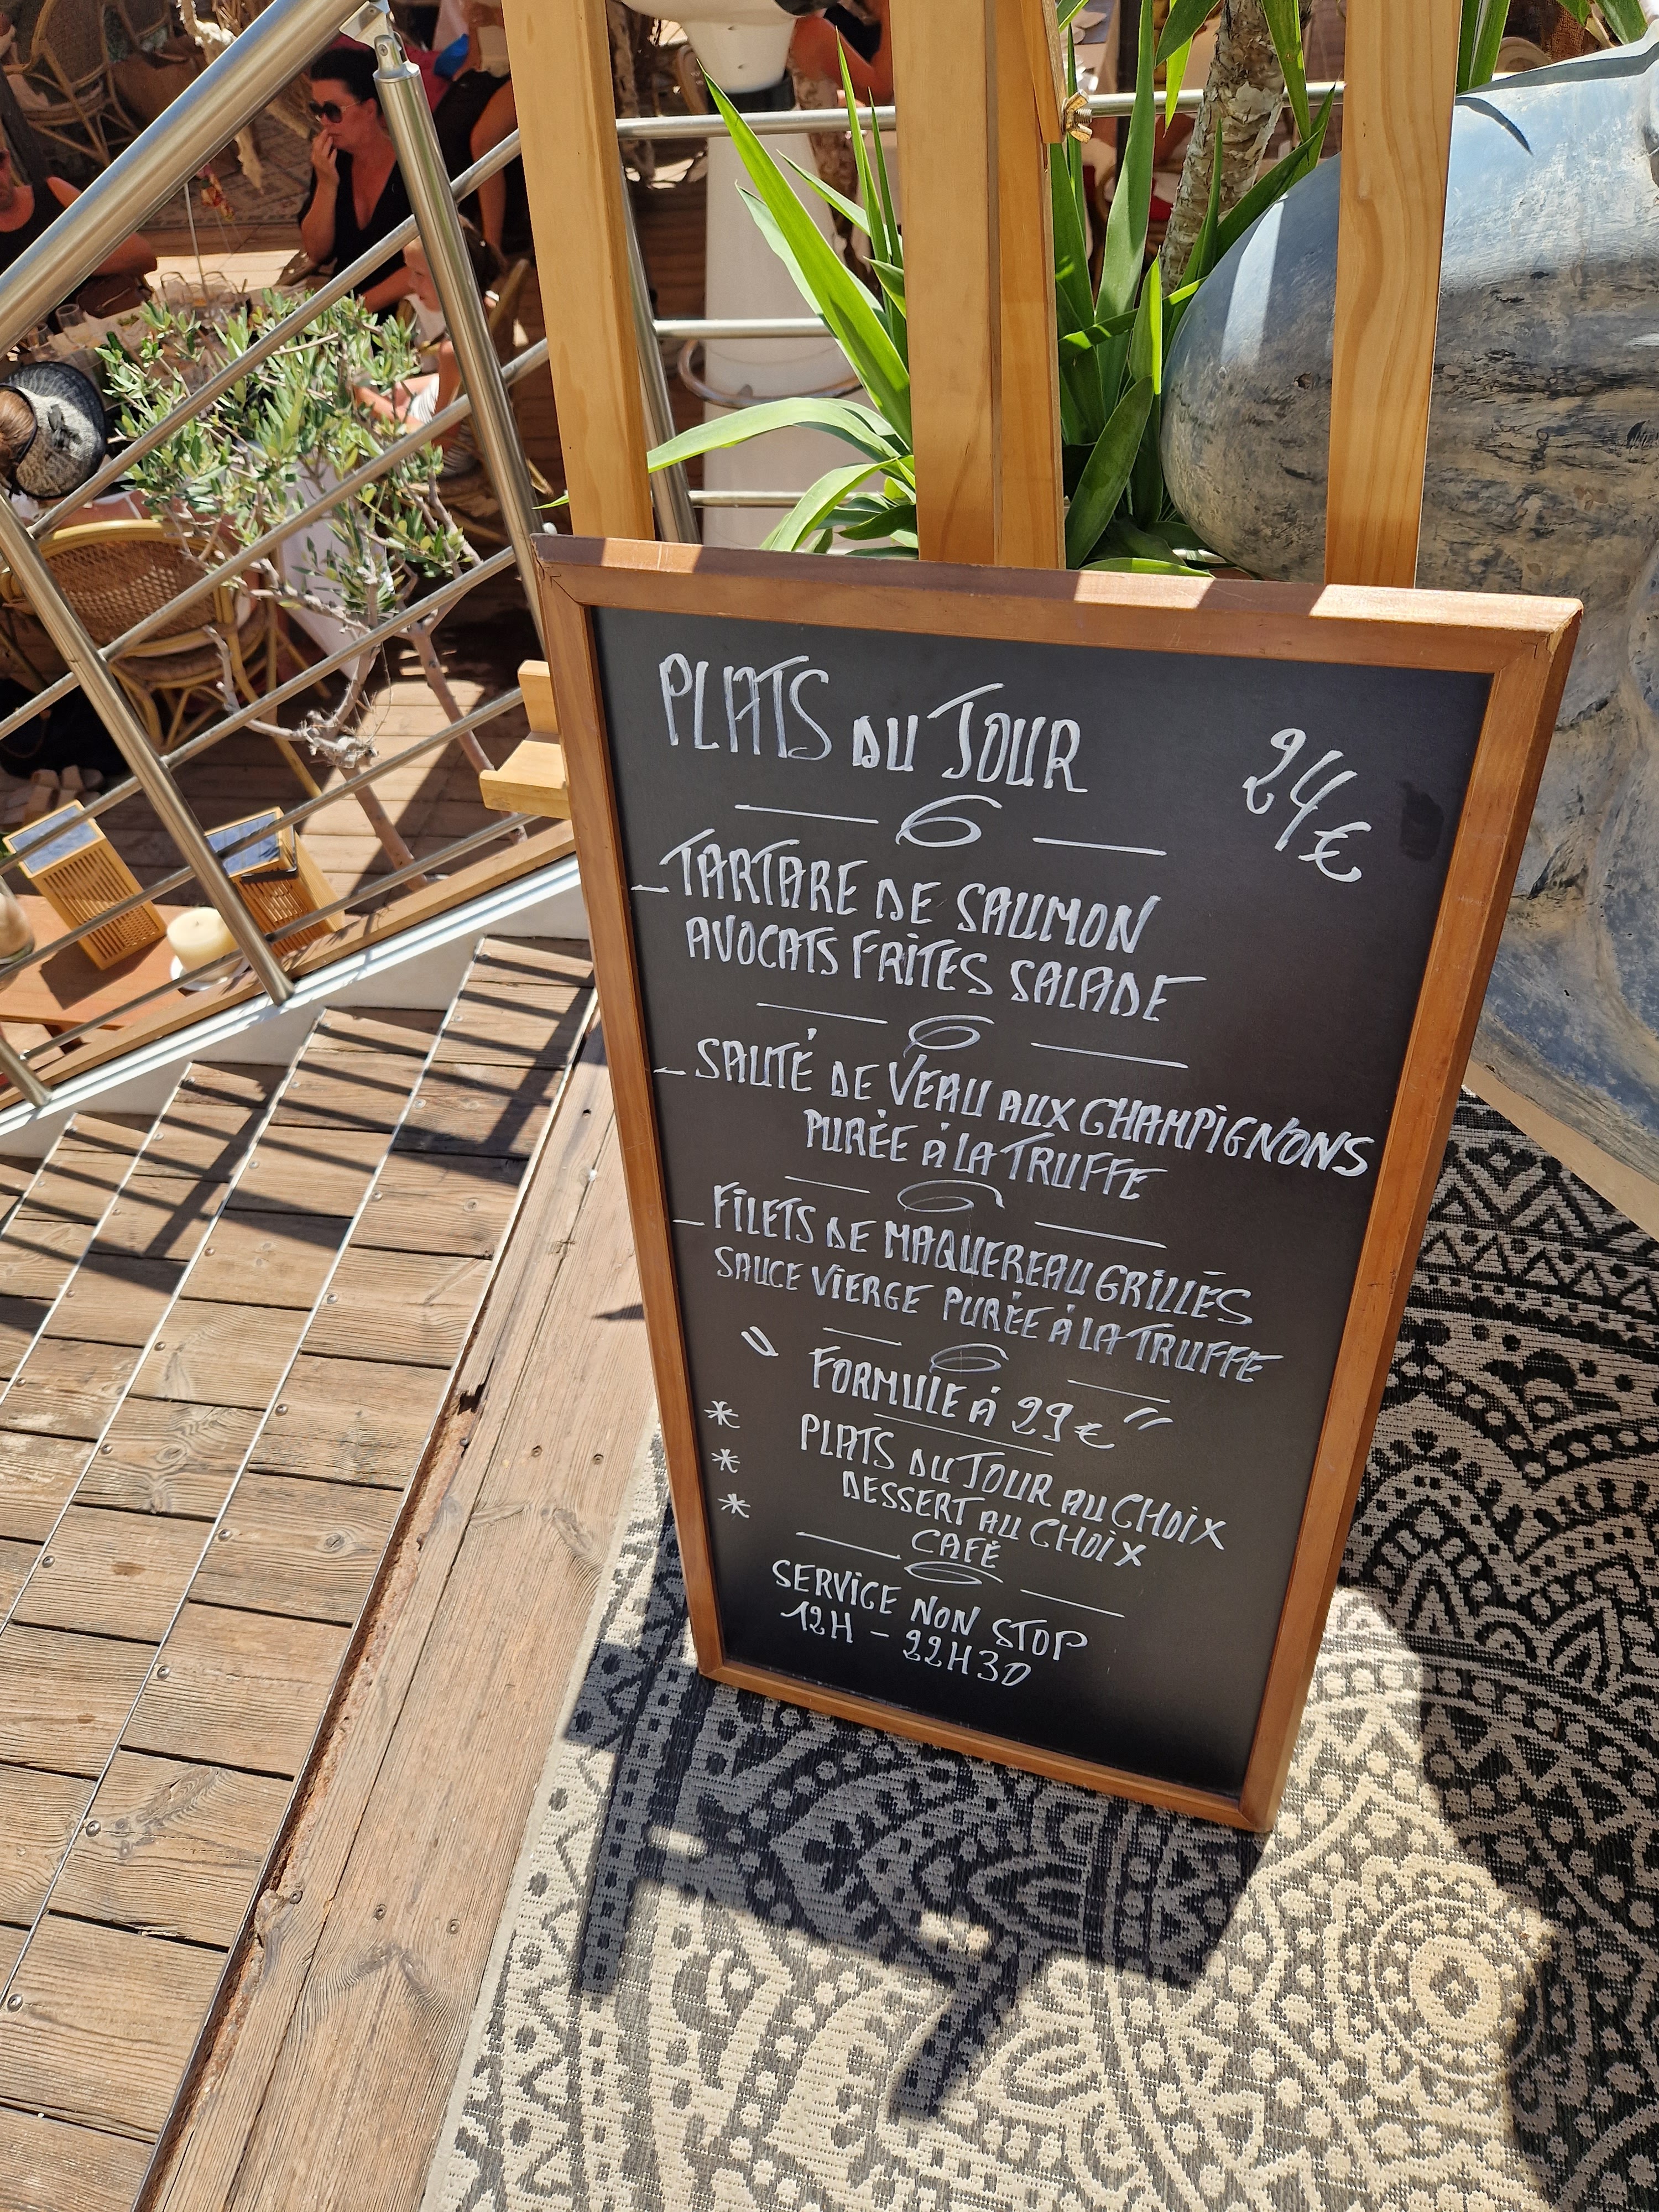 PLATS DU JOUR 24€
- TARTARE DE SAUMON
AVOCATS FRITES SALADE
- SAUTÉ DE VEAU AUX CHAMPIGNONS
PURÉE À LA TRUFFE
- FILETS DE MAQUEREAU GRILLÉS
SAUCE VIERGE PURÉE À LA TRUFFE
" FORMULE À 29€ "
* PLATS DU JOUR AU CHOIX
* DESSERT AU CHOIX
* CAFÉ
SERVICE NON STOP
12H - 22H30